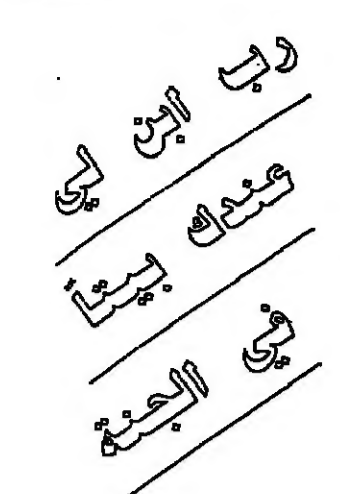 رب ابن لي
عندك بيتاً
في الجنة